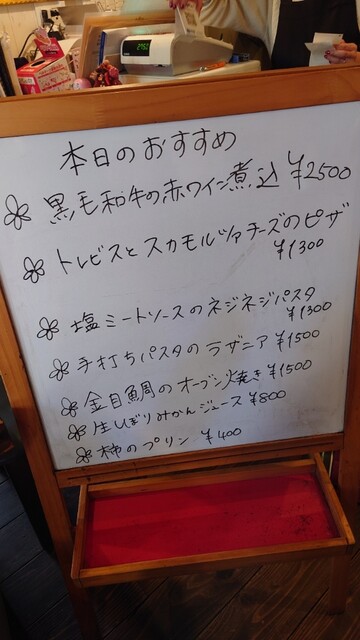 本日のおすすめ
黒毛和牛の赤ワイン煮込 ¥2500
トレビスとスカモルツァチーズのピザ
¥1300
塩ミートソースのネジネジパスタ
¥1300
手打ちパスタのラザニア ¥1500
金目鯛のオーブン焼き ¥1500
生しぼりみかんジュース ¥800
柿のプリン ¥400